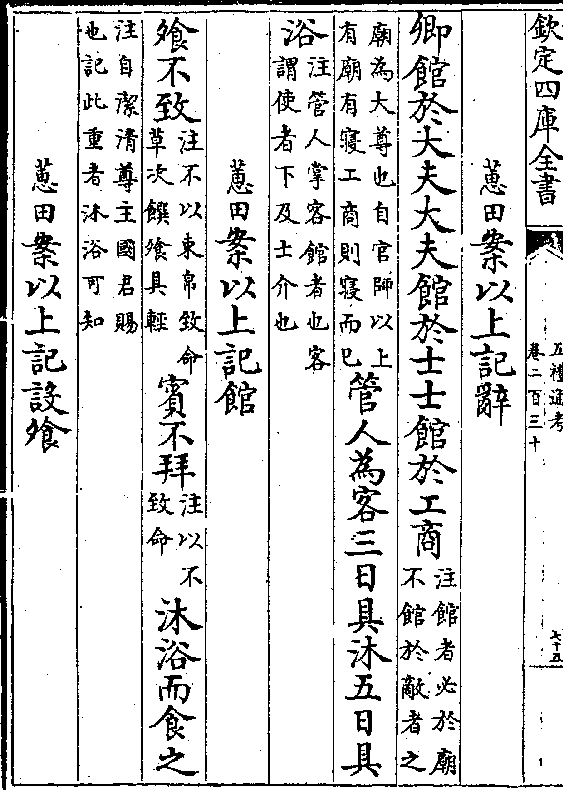 欽定四庫全書
五禮通考
卷二百三十
七十五
蕙田案以上記辭
卿館於大夫大夫館於士士館於工商注館者必於廟
不館於敵者之
廟為大尊也自官師以上
有廟有寢工商則寢而已管人為客三日具沐五日具
浴注管人掌客館者也客
謂使者下及士介也
蕙田案以上記館
飧不致注不以束帛致命
草次饌飧具輕賓不拜注以不
致命沐浴而食之
注自潔清尊主國君賜
也記此重者沐浴可知
蕙田案以上記設飧